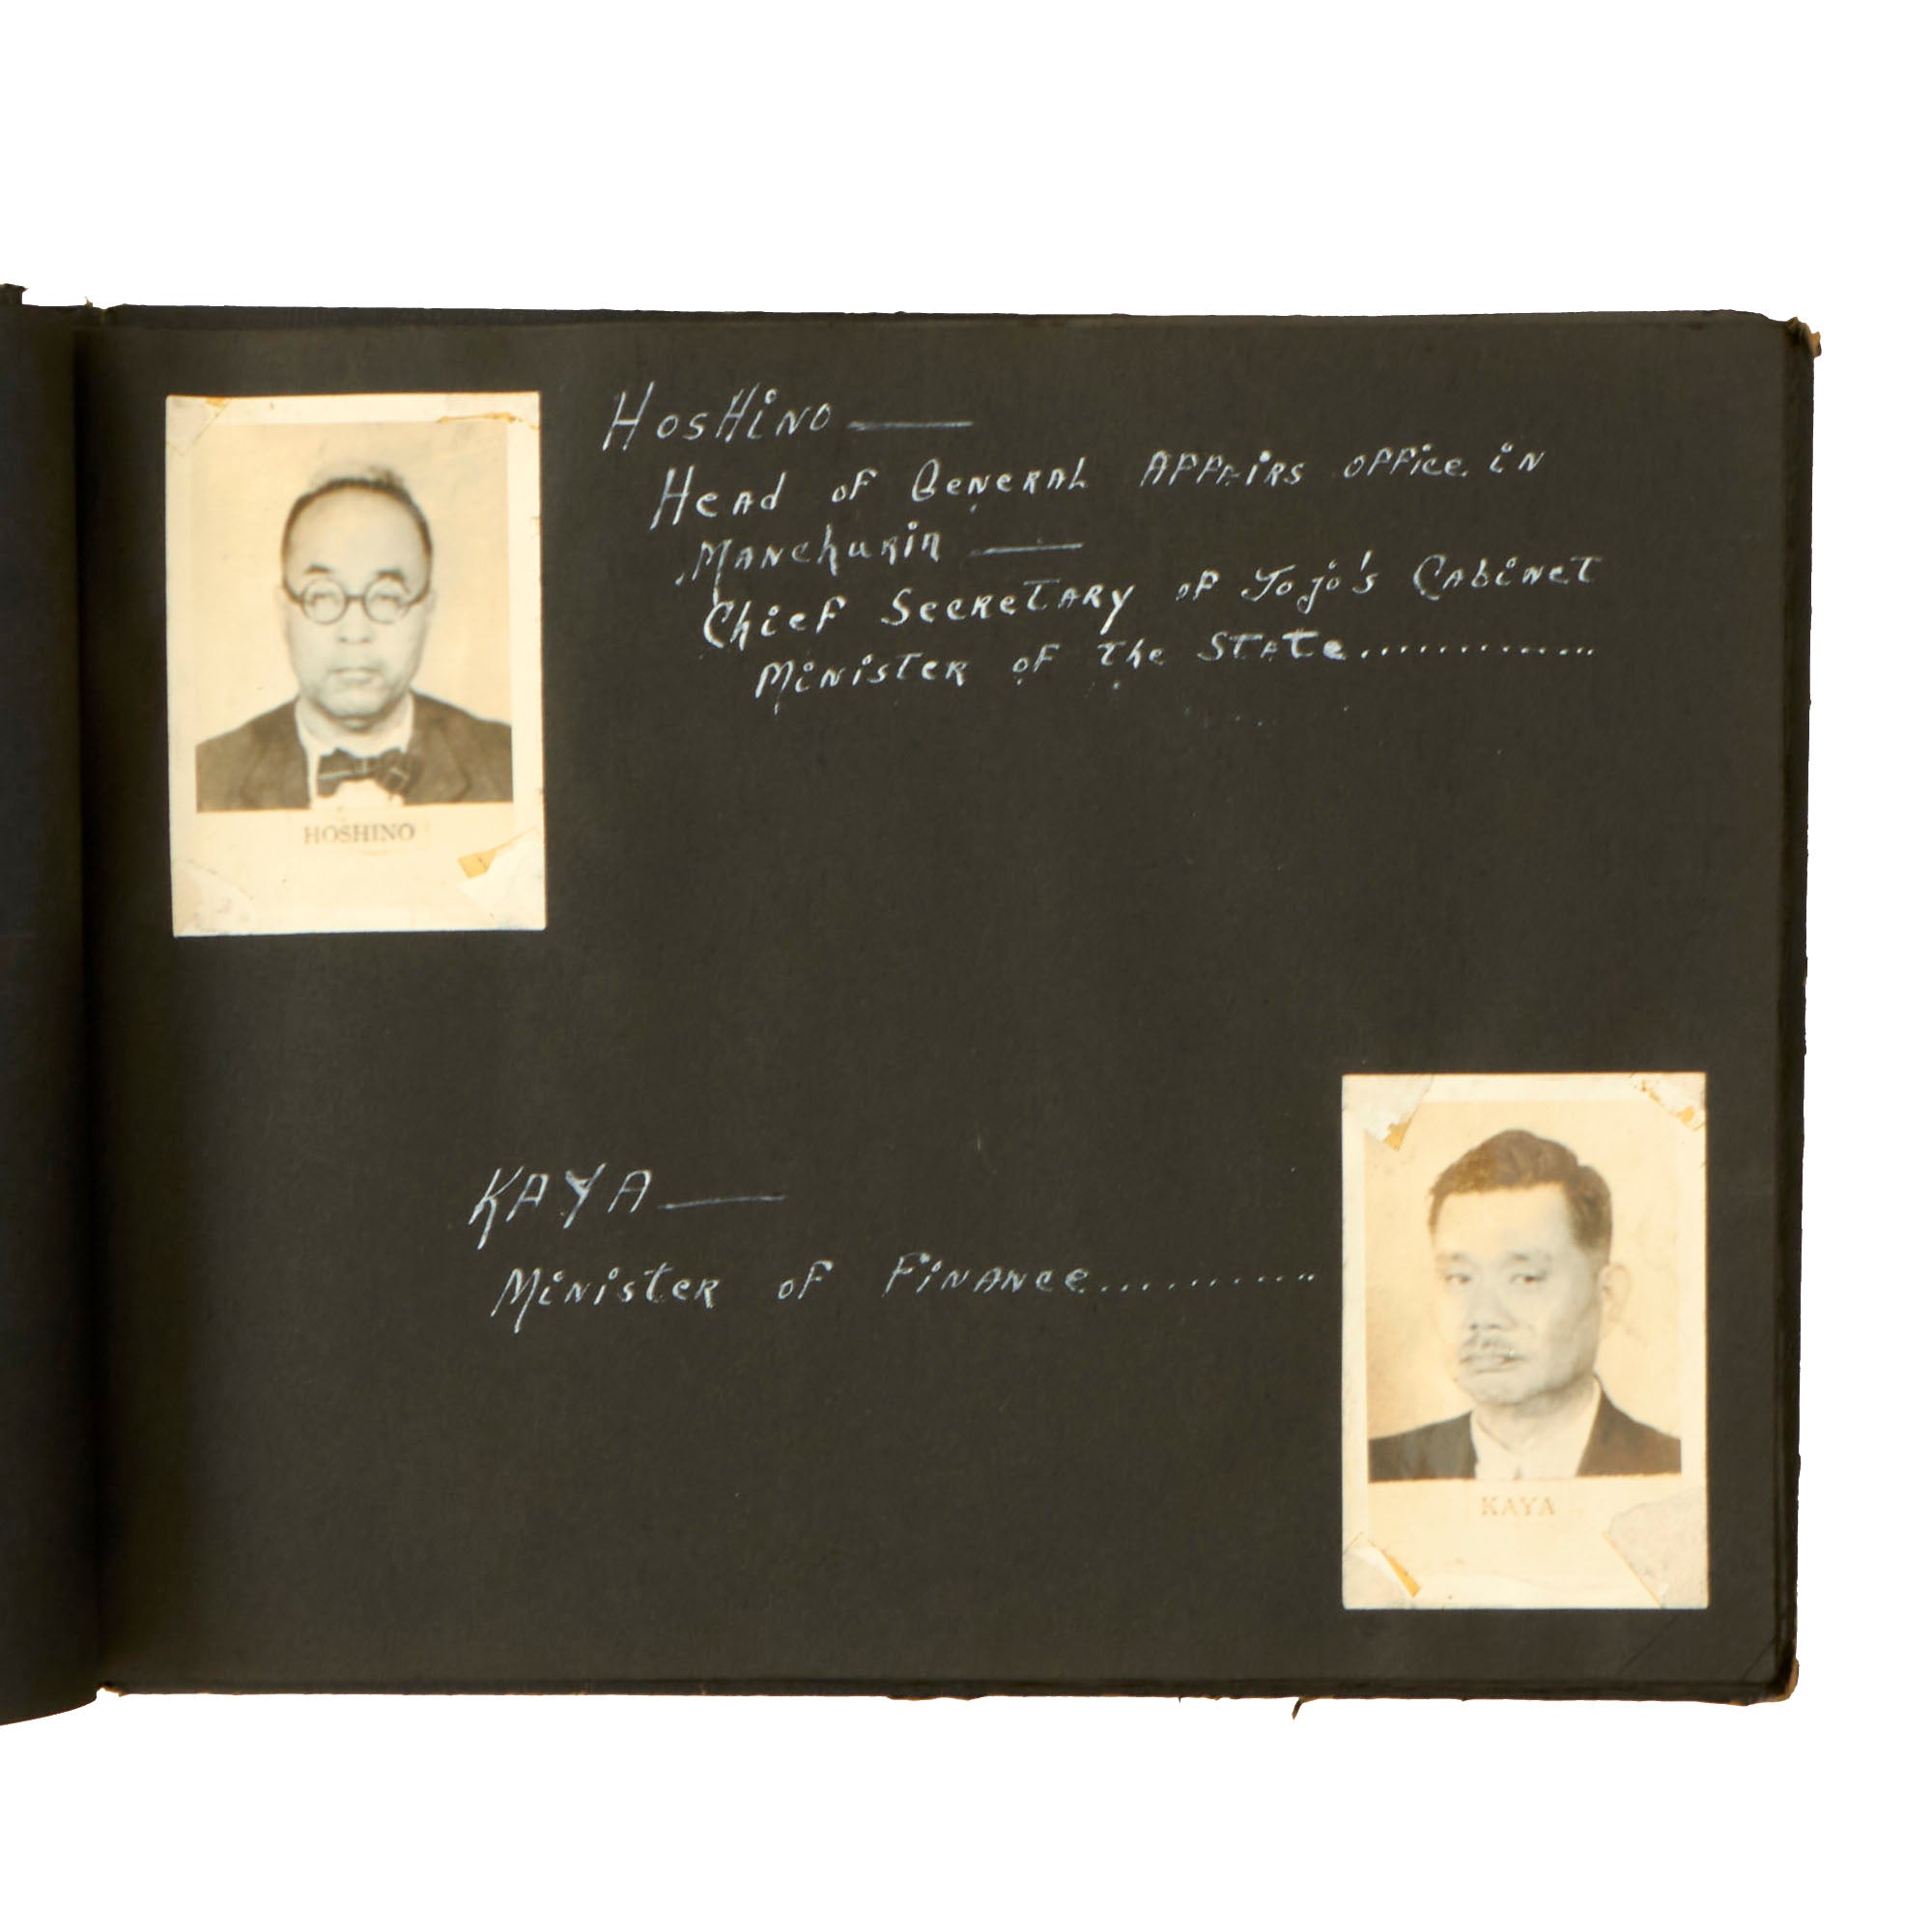 HosHiNO ——
Head of General Affairs office in
Manchuria ——
Chief Secretary of Tojo's Cabinet
Minister of the State.............
HOSHINO
KAYA ——
Minister of Finance...........
KAYA